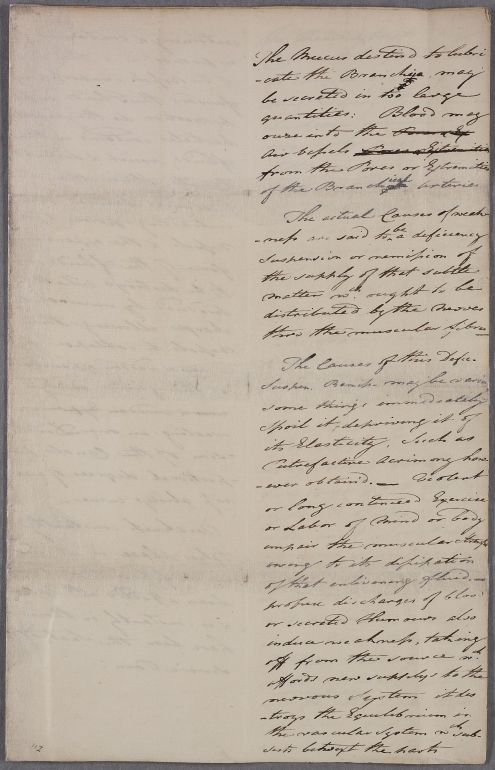 The Mucus destined to lubri
-cate the Branchiæ may
be secreted in too large
quantities: Blood may
ouze into the
Air Vessels
from the Pores or Extremities
of the Branchial arteries
The actual Causes of weak-
-ness are said to be a deficiency
suspension or remission of
the supply of that subtle
matter wch. ought to be
distributed by the nerves
thro the muscular fibres
The Causes of this Defic.
Suspen. Remiss. may be various
some things immediately
spoil it, depriving it of
its Elasticity, Such as
Putrefactive Acrimony how
-ever obtained.— Violent
or long continued Exercise
or Labor of Mind or body
impair the muscular strength
owing to its dissipation
of that enlivening fluid.—
profuse discharges of blood
or secreted Humours also
induce weakness, taking
off from the source wch
affords new supplys to the
nervous System it des
-troys the Equilibrium in
the vascular System wch sub-
sists betwixt the parts
42